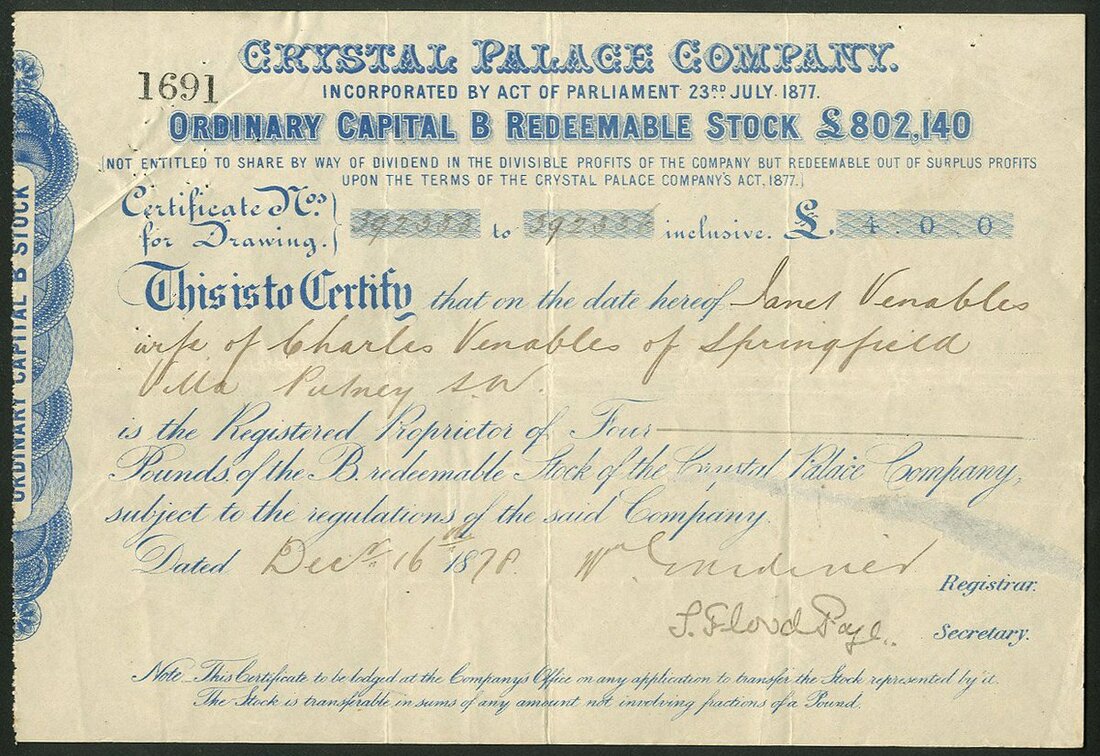 CRYSTAL PALACE COMPANY.
1691
INCORPORATED BY ACT OF PARLIAMENT 23RD JULY. 1877.
ORDINARY CAPITAL B REDEEMABLE STOCK £802,140
(NOT ENTITLED TO SHARE BY WAY OF DIVIDEND IN THE DIVISIBLE PROFITS OF THE COMPANY BUT REDEEMABLE OUT OF SURPLUS PROFITS
UPON THE TERMS OF THE CRYSTAL PALACE COMPANY'S ACT, 1877.)
Certificate Nos.
for Drawing. to inclusive. £. 4 . 0 . 0
This is to Certify that on the date hereof Janet Venables
wife of Charles Venables of Springfield
Villa Putney S.W.
is the Registered Proprietor of Four
Pounds, of the B. redeemable Stock of the Crystal Palace Company,
subject to the regulations of the said Company.
Dated Decr. 16th 1878. Wm Gardiner
Registrar.
Secretary.
Note. This Certificate to be lodged at the Company's Office on any application to transfer the Stock represented by it.
The Stock is transferable in sums of any amount not involving fractions of a Pound.
ORDINARY CAPITAL B STOCK